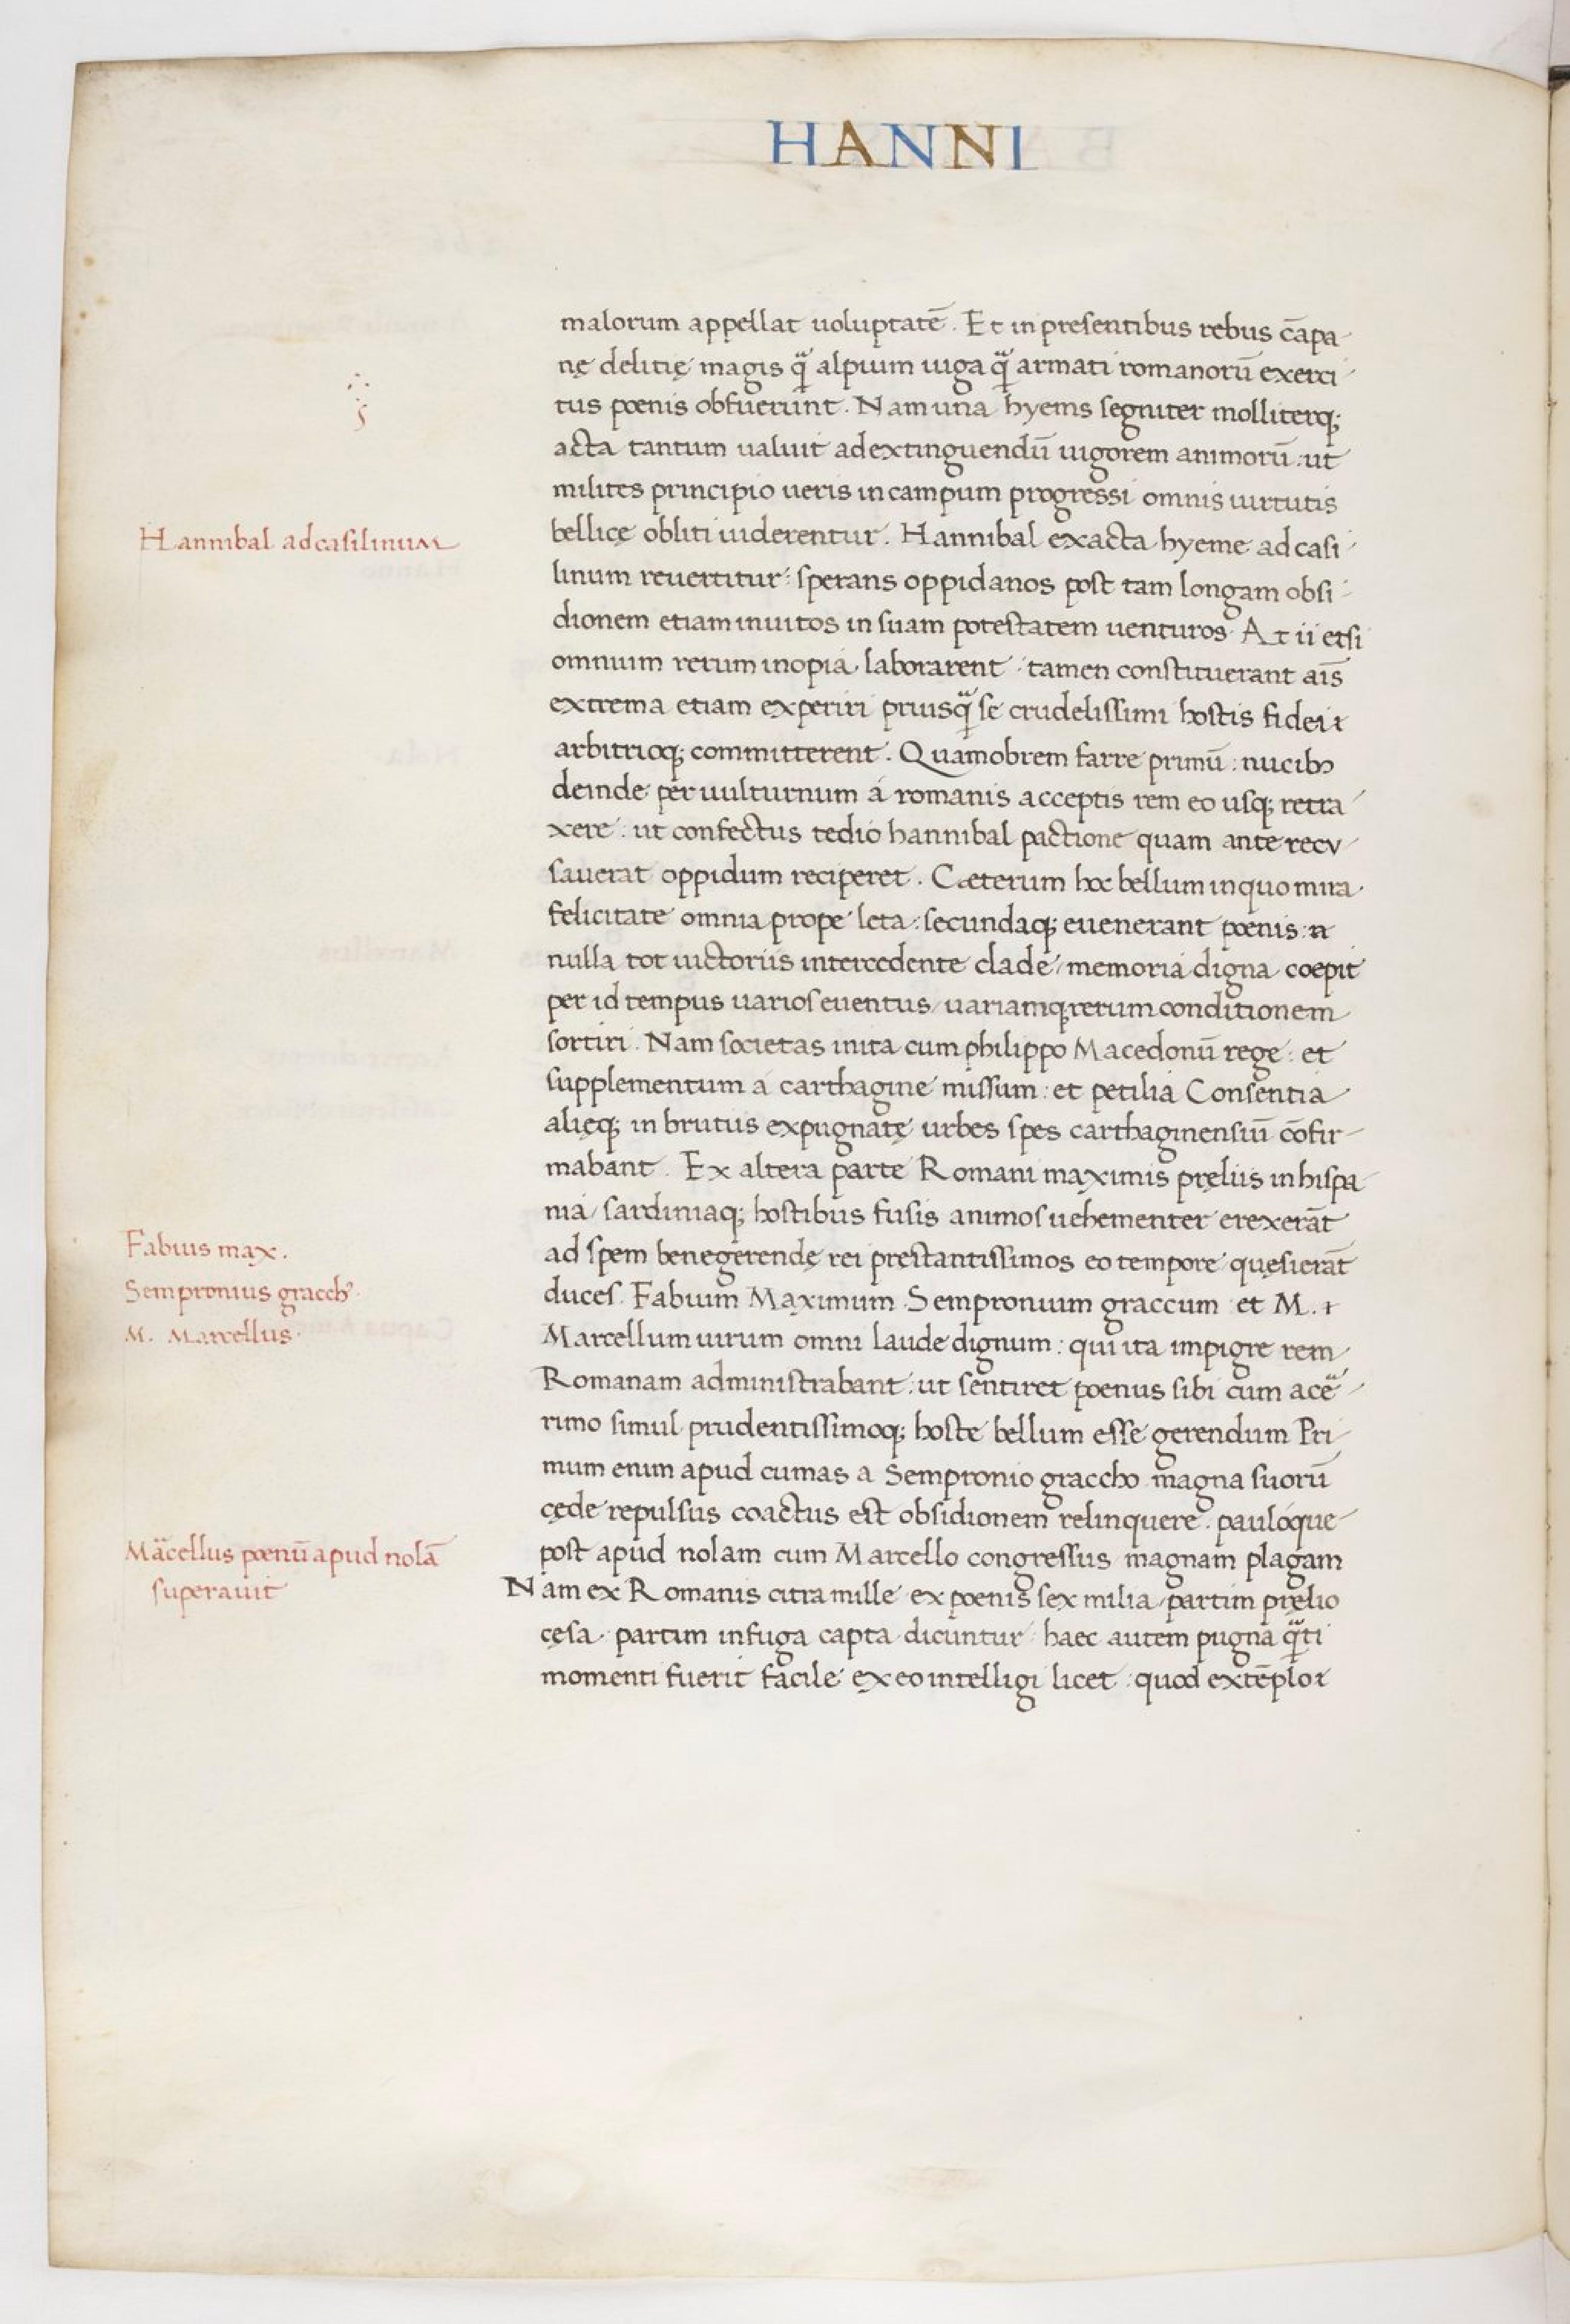 HANNI
malorum appellat uoluptatē. Et in presentibus rebus cāpa-
nę delitię magis q̃ alpium iuga q̃ armati romanorū exerci-
tus poenis obfuerunt. Nam una hyems segniter molliterq;
acta tantum ualuit ad extinguendū uigorem animorū: ut
milites principio ueris in campum progressi omnis uirtutis
Hannibal ad casilinum
bellicę obliti uiderentur. Hannibal exacta hyeme ad casi-
linum reuertitur: sperans oppidanos post tam longam obsi-
dionem etiam inuitos in suam potestatem uenturos. At ii etsi
omnium rerum inopia laborarent: tamen constituerant aīs
extrema etiam experiri priusq̃ se crudelissimi hostis fidei
arbitrioq; committerent. Quamobrem farre primū: nucibꝰ
deinde per uulturnum á romanis acceptis rem eo usq; retra-
xere: ut confectus tedio hannibal pactione quam ante recu-
sauerat oppidum reciperet. Cæterum hoc bellum in quo mira
felicitate omnia prope leta: secundaq; euenerant poenis:
nulla tot uictoriis intercedente clade/ memoria digna coepit
per id tempus uarios euentus/ uariamq; rerum conditionem
sortiri. Nam societas inita cum philippo Macedonū rege: et
supplementum a carthagine missum: et petilia Consentia
alięq; in brutiis expugnatę urbes spes carthaginensiū cōfir-
mabant. Ex altera parte Romani maximis pręliis in hispa-
nia/ sardiniaq; hostibus fusis animos uehementer erexerāt
Fabius max.
ad spem benegerendę rei prestantissimos eo tempore quęsierāt
Sempronius gracchꝰ.
duces. Fabium Maximum. Sempronium graccum et M.
M. Marcellus.
Marcellum uirum omni laude dignum: qui ita impigre rem
Romanam administrabant: ut sentiret poenus sibi cum acer-
rimo simul prudentissimoq; hoste bellum esse gerendum Pri-
mum enim apud cumas a Sempronio graccho magna suorū
cęde repulsus coactus est obsidionem relinquere. pauloque
Marcellus poenū apud nolā
post apud nolam cum Marcello congressus magnam plagam
superauit
Nam ex Romanis citra mille ex poenis sex milia/ partim pręlio
cęsa. partim in fuga capta dicuntur haec autem pugna q̃ti
momenti fuerit facile ex eo intelligi licet: quod extēplo